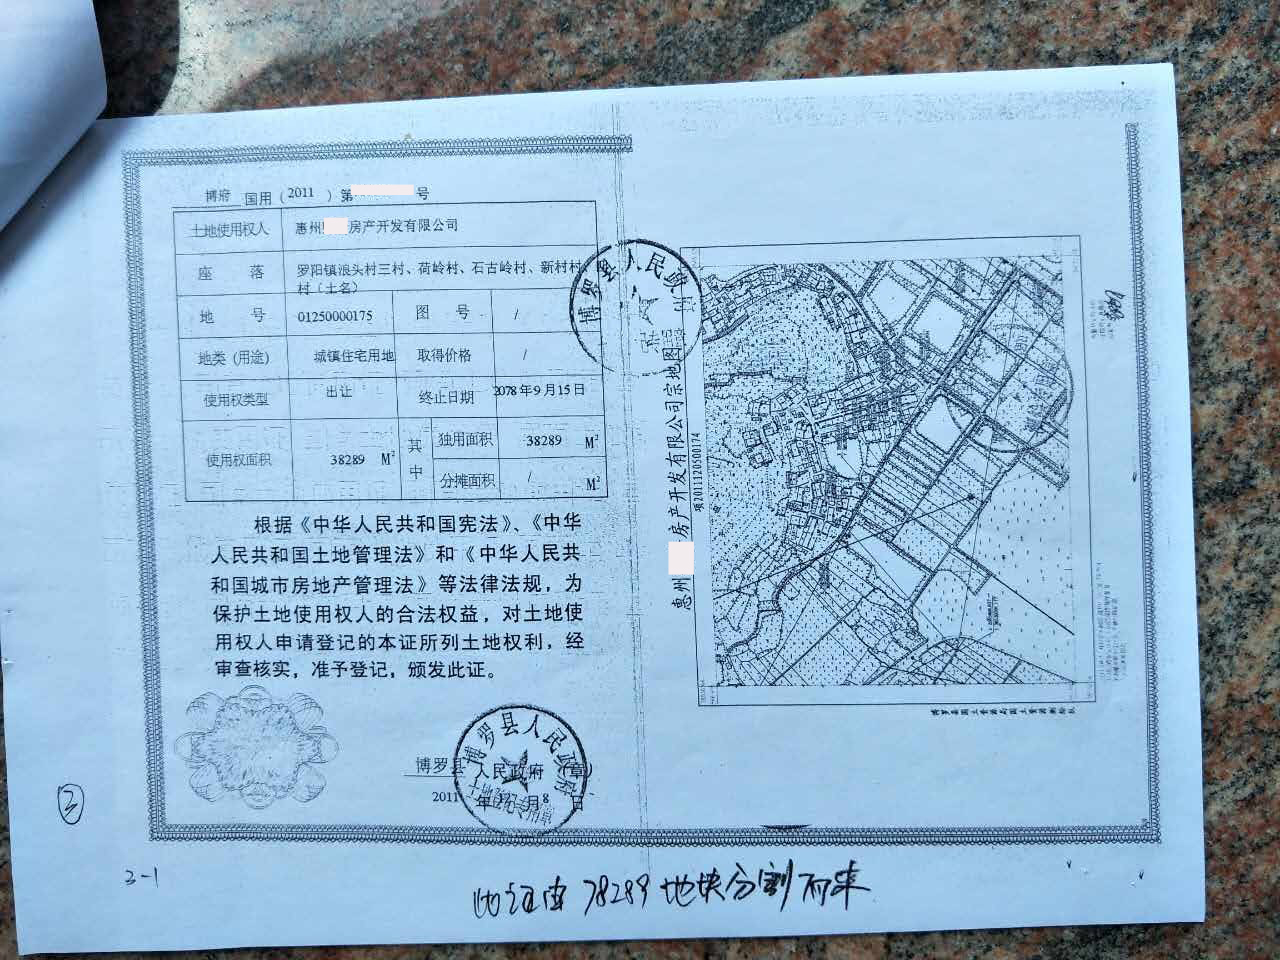 博府 国用（2011）第 号
土地使用权人 惠州 房产开发有限公司
座 落 罗阳镇浪头村三村、荷岭村、石古岭村、新村村
村（土名）
地 号 01250000175 图 号 /
地类（用途） 城镇住宅用地 取得价格 /
使用权类型 出让 终止日期 2078年9月15日
使用权面积 38289 M² 其中 独用面积 38289 M²
分摊面积 / M²
根据《中华人民共和国宪法》、《中华
人民共和国土地管理法》和《中华人民共
和国城市房地产管理法》等法律法规，为
保护土地使用权人的合法权益，对土地使
用权人申请登记的本证所列土地权利，经
审查核实，准予登记，颁发此证。
博罗县 人民政府（章）
2011 年 月 8 日
博罗县人民政府
土地登记专用章
博罗县人民政
惠州 房产开发有限公司宗地图
项2011120500174
博罗县国土资源局国土资源测绘队
③
3-1
此证由78289地块分割而来